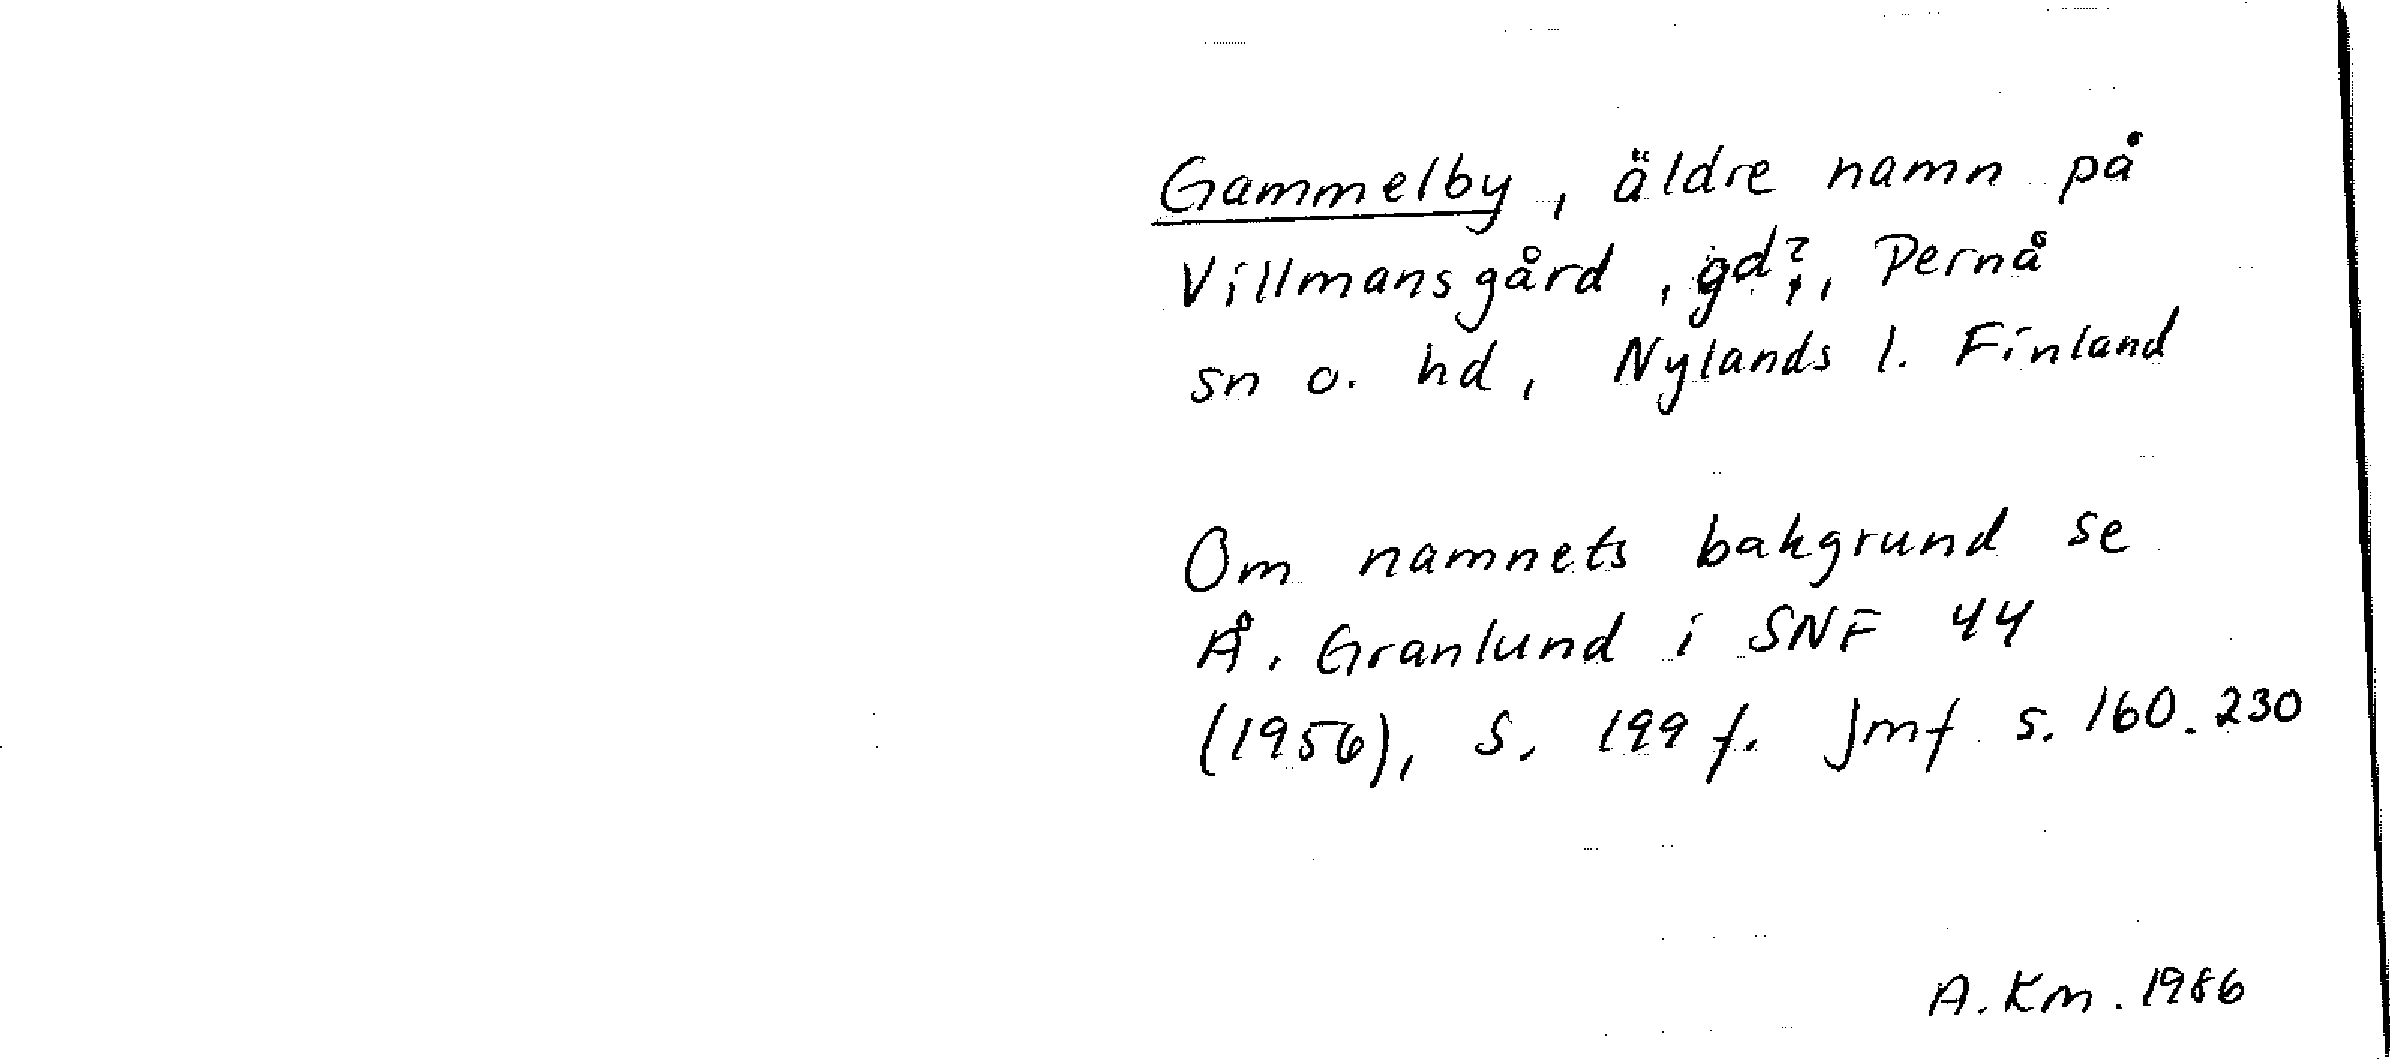 Gammelby, äldre namn på
Villmansgård, gd?, Pernå
sn o. hd, Nylands l. Finland
Om namnets bakgrund se
Å. Granlund i SNF 44
(1956), s. 199 f. jmf s. 160. 230
A. Km. 1986